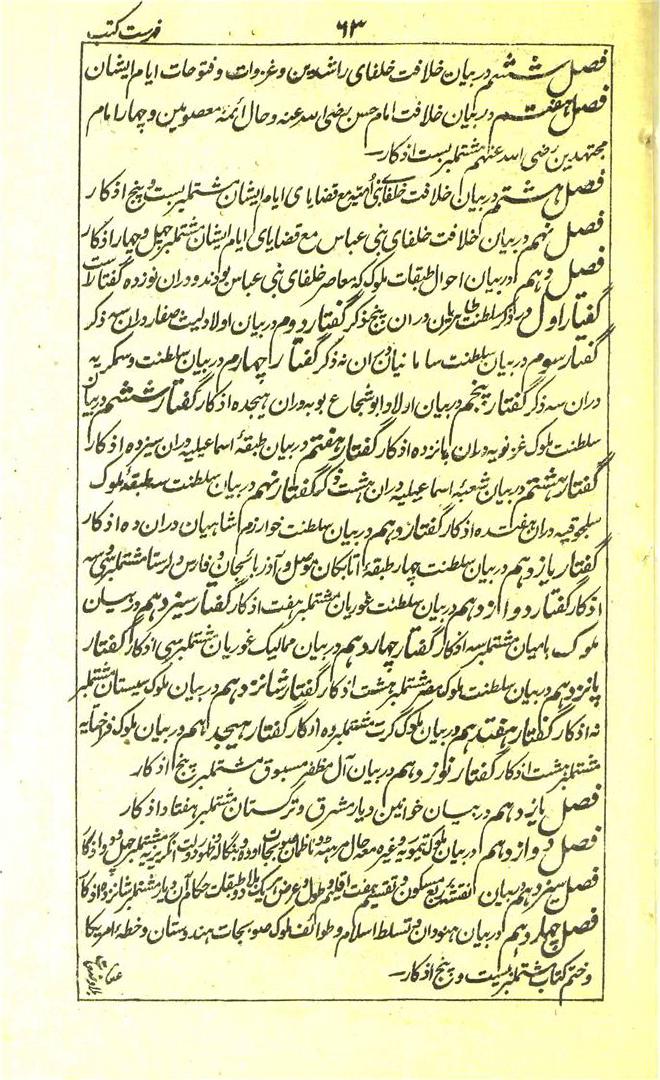 ۶۳
فهرست کتب
فصل ششم در بیان خلافت خلفای راشدین و غزوات و فتوحات ایام ایشان
فصل هفتم در بیان خلافت امام حسن رضی الله عنه و حال ائمهٔ معصومین و چهار امام
مجتهدین رضی الله عنهم مشتملبر بست اذکار
فصل هشتم در بیان خلافت خلفای بنی امیه مع قضایای ایام ایشان مشتملبر بست و پنج اذکار
فصل نهم در بیان خلافت خلفای بنی عباس مع قضایای ایام ایشان مشتملبر چهل و چهار اذکار
فصل دهم در بیان احوال طبقات ملوک که معاصر خلفای بنی عباس بودند و دران نوزده گفتار است
گفتار اول در ذکر سلطنت طاهریان دران پنج ذکر گفتار دوم در بیان اولاد لیث صفار دران سه ذکر
گفتار سوم در بیان سلطنت سامانیان دران نه ذکر گفتار چهارم در بیان سلطنت وسمکریه
دران سه ذکر گفتار پنجم در بیان اولاد ابو شجاع بویه دران هیجده اذکار گفتار ششم در بیان
سلطنت ملوک غزنویه دران پانزده اذکار گفتار هفتم در بیان طبقهٔ اسماعیلیه دران سیزده اذکار
گفتار هشتم در بیان شعبهٔ اسماعیلیه دران هشت ذکر گفتار نهم در بیان سلطنت سه طبقهٔ ملوک
سلجوقیه دران هفده اذکار گفتار دهم در بیان سلطنت خوارزم شاهیان دران ده اذکار
گفتار یازدهم در بیان سلطنت چهار طبقهٔ اتابکان موصل و آذربائیجان و فارس و لرستان مشتملبر سی و سه
اذکار گفتار دوازدهم در بیان سلطنت غوریان مشتملبر هفت اذکار گفتار سیزدهم در بیان
ملوک بامیان مشتملبر سه اذکار گفتار چهاردهم در بیان ممالیک غوریان مشتملبر سی اذکار گفتار
پانزدهم در بیان سلطنت ملوک مصر مشتملبر هشت اذکار گفتار شانزدهم در بیان ملوک سیستان مشتملبر
نه اذکار گفتار هفتدهم در بیان ملوک کرت مشتملبر ده اذکار گفتار هیجدهم در بیان ملوک قراخطایه
مشتملبر هشت اذکار گفتار نوزدهم در بیان آل مظفر مسبوق مشتملبر پنج اذکار
فصل یازدهم در بیان خوانین دیار مشرق و ترکستان مشتملبر هفتاد اذکار
فصل دوازدهم در بیان ملوک تیموریه و غیره مع حال مرهٹه و ناظمان صوبجات اوده و بنگاله و ظهور دولت انگریزیه مشتملبر چهل و دو اذکار
فصل سیزدهم در بیان نقشه ربع مسکون و تقسیم هفت اقلیم و طول و عرض هر یک بلاد و طبقات حکام آن دیار مشتملبر شانزده اذکار
فصل چهاردهم در بیان هنودان و تسلط اسلام و طوائف ملوک صوبجات هندوستان و خطهٔ امریکا
و ختم کتاب مشتملبر بیست و پنج اذکار